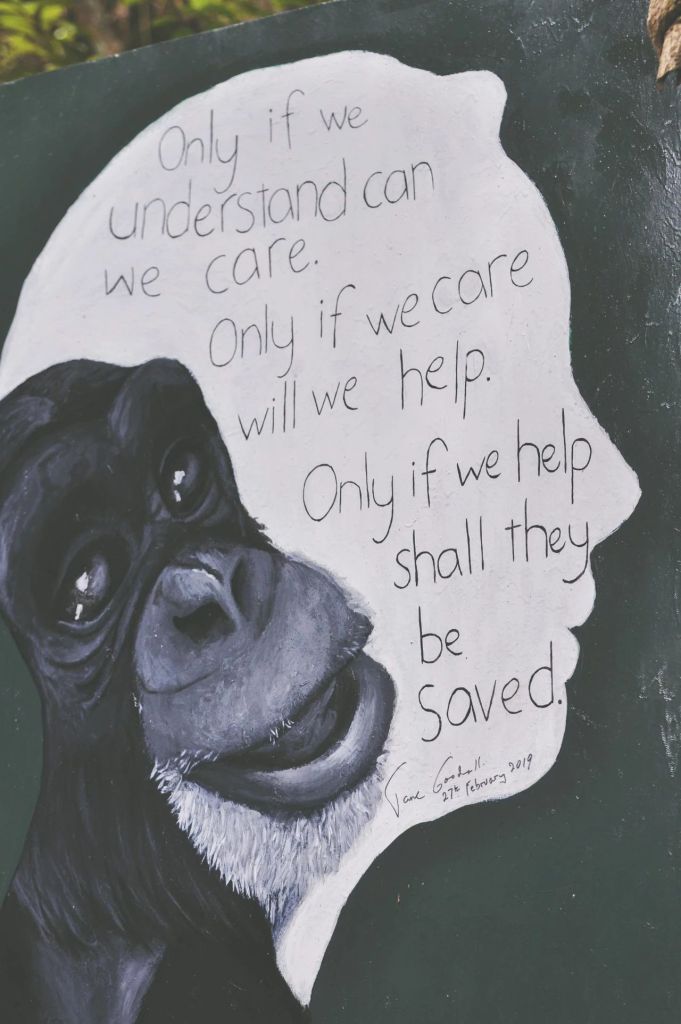 Only if we
understand can
we care.
Only if we care
will we help.
Only if we help
shall they
be
saved.
Jane Goodall.
27th February 2019